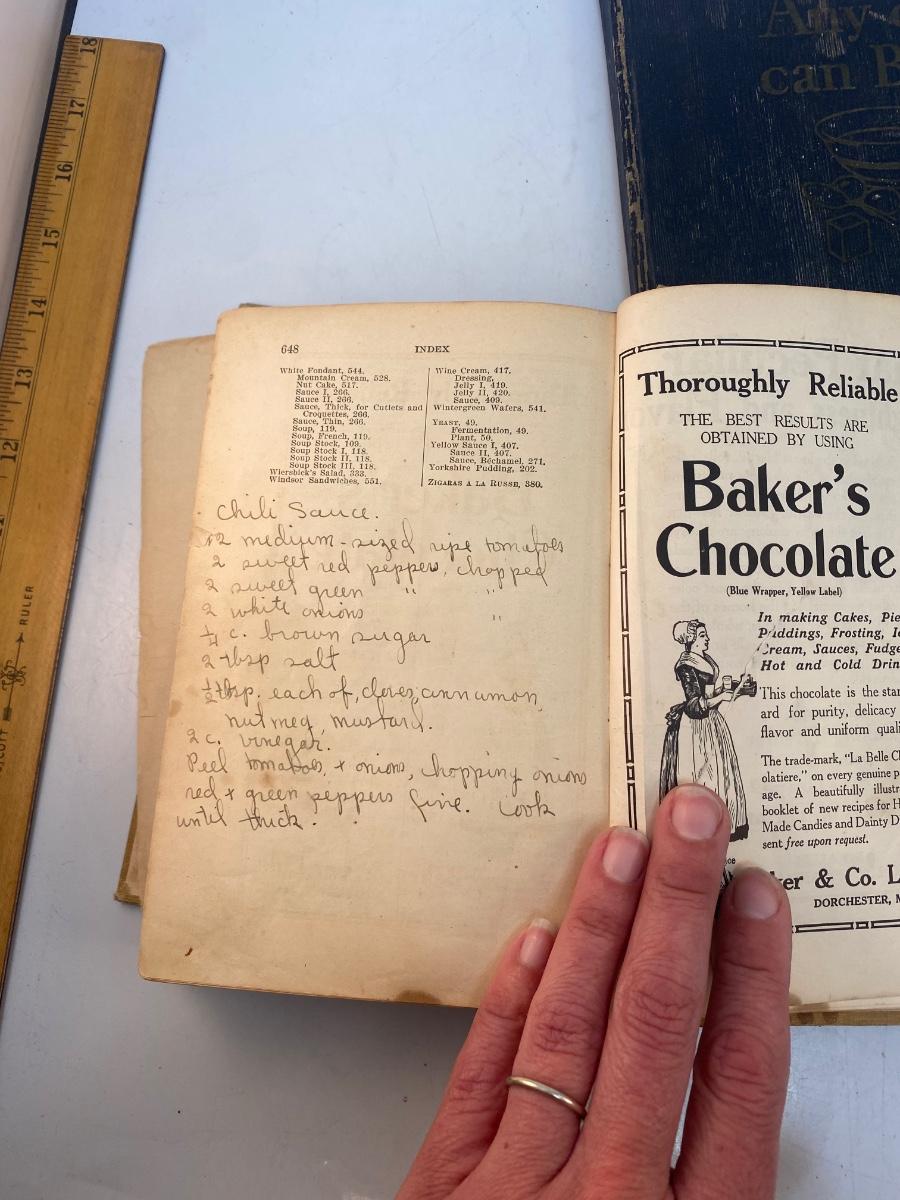 18
17
16
15
14
13
12
RULER
Any
can B
648 INDEX
White Fondant, 544.
Mountain Cream, 528.
Nut Cake, 517.
Sauce I, 266.
Sauce II, 266.
Sauce, Thick, for Cutlets and
Croquettes, 266.
Sauce, Thin, 266.
Soup, 119.
Soup, French, 119.
Soup Stock, 109.
Soup Stock I, 118.
Soup Stock II, 118.
Soup Stock III, 118.
Wiersbick's Salad, 333.
Windsor Sandwiches, 551.
Wine Cream, 417.
Dressing,
Jelly I, 419.
Jelly II, 420.
Sauce, 409.
Wintergreen Wafers, 541.
YEAST, 49.
Fermentation, 49.
Plant, 50.
Yellow Sauce I, 407.
Sauce II, 407.
Sauce, Béchamel, 271.
Yorkshire Pudding, 202.
ZIGARAS A LA RUSSE, 380.
Chili Sauce.
12 medium-sized ripe tomatoes
2 sweet red peppers, chopped
2 sweet green " "
2 white onions "
¼ c. brown sugar
2 tbsp salt
½ tbsp. each of, cloves, cinnamon,
nutmeg, mustard.
2 c. vinegar.
Peel tomatoes, + onions, chopping onions
red + green peppers fine. Cook
until thick.
Thoroughly Reliable
THE BEST RESULTS ARE
OBTAINED BY USING
Baker's
Chocolate
(Blue Wrapper, Yellow Label)
In making Cakes, Pie
Puddings, Frosting, I
Cream, Sauces, Fudge
Hot and Cold Drin
This chocolate is the sta
ard for purity, delicacy
flavor and uniform quali
The trade-mark, "La Belle C
olatiere," on every genuine p
age. A beautifully illustr
booklet of new recipes for H
Made Candies and Dainty D
sent free upon request.
ker & Co. L
DORCHESTER, M